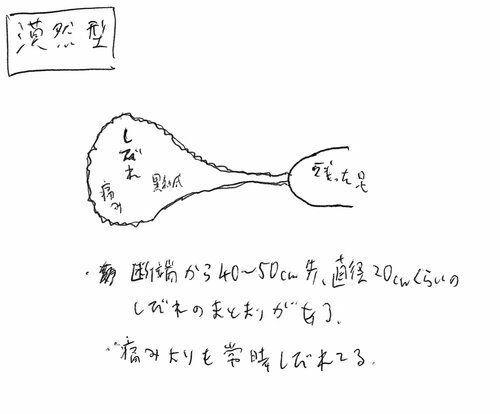 漠然型
しびれ
痛み
残った足
・断端から40〜50cm先、直径20cmくらいの
しびれのまとまりがある。
・痛みよりも常時しびれてる。